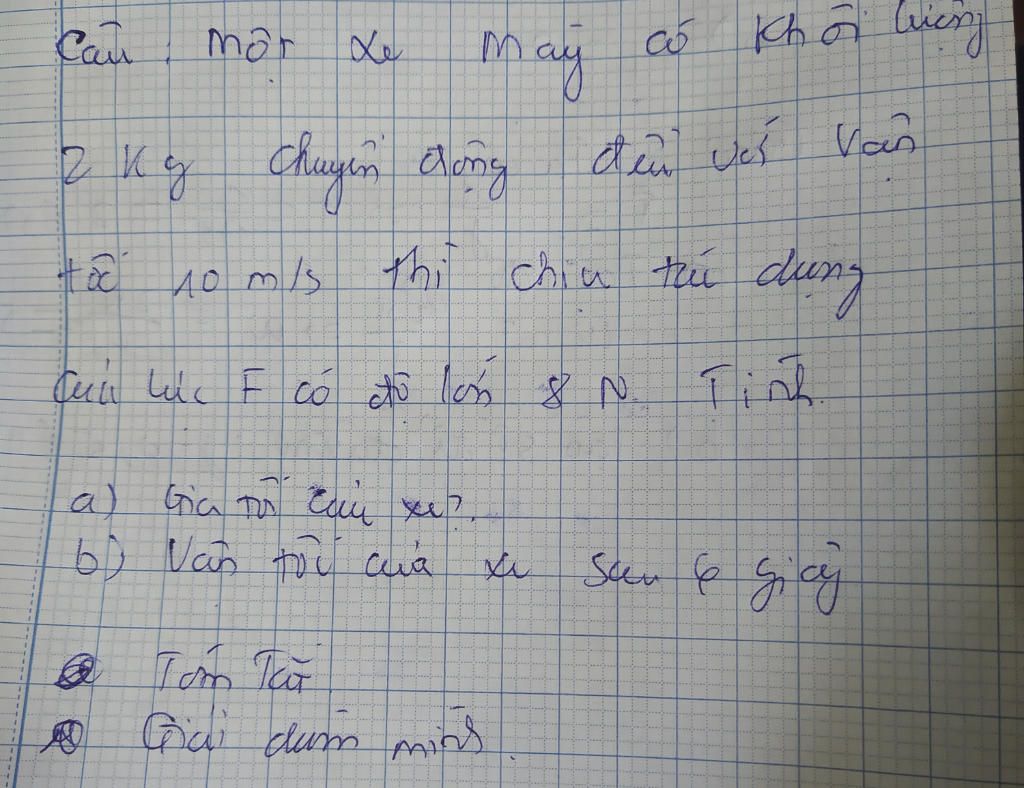 Câu : Một xe máy có khối lượng
2 Kg chuyển động đều với vận
tốc 10 m/s thì chịu tác dụng
của lực F có độ lớn 8 N. Tính.
a) Gia tốc của xe?.
b) Vận tốc của xe sau 6 giây
Tóm Tắt
Giải dùm mình.